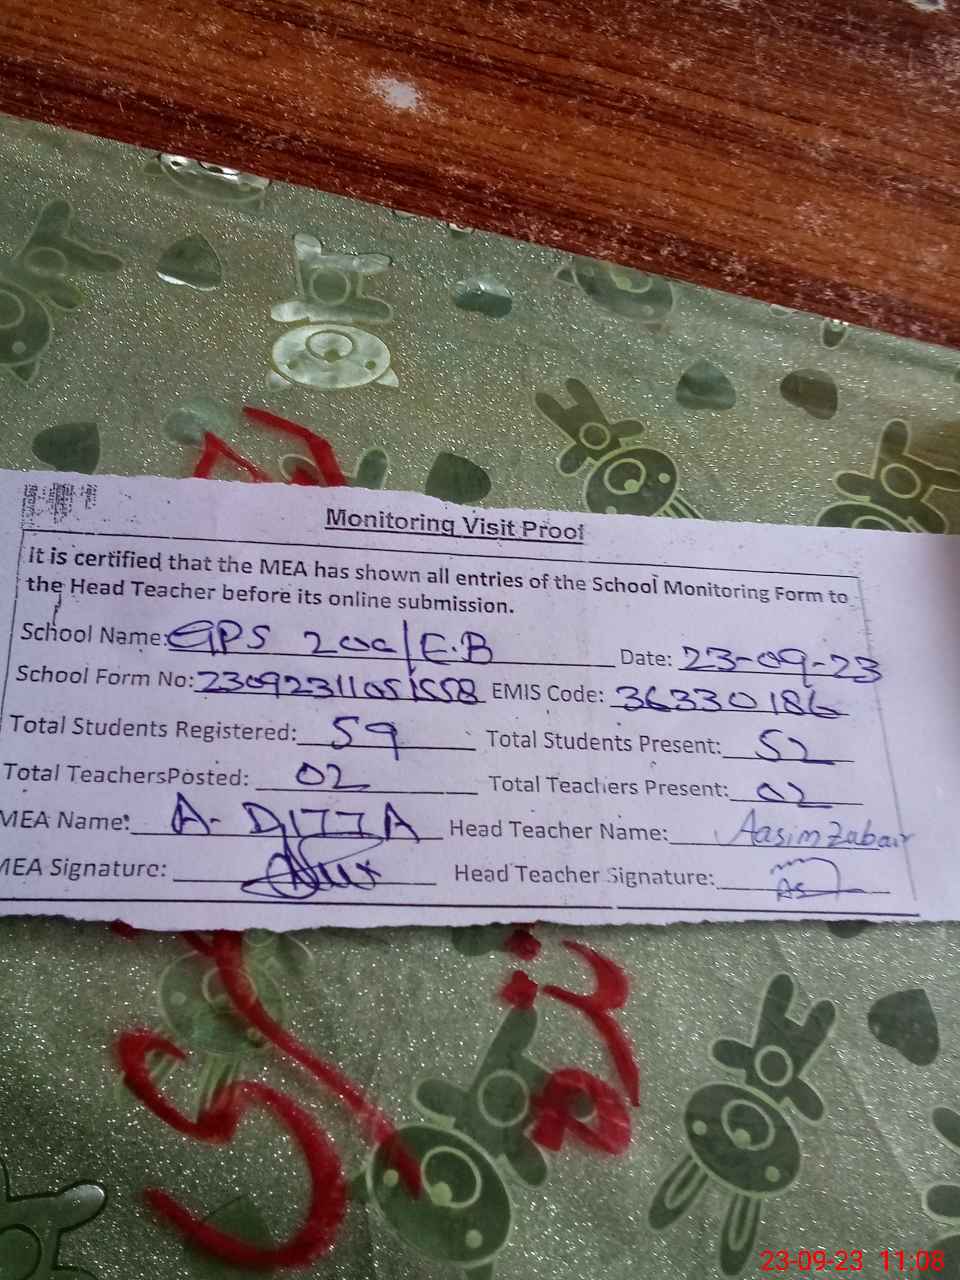 Monitoring Visit Proof
It is certified that the MEA has shown all entries of the School Monitoring Form to
the Head Teacher before its online submission.
School Name: GPS 200/E.B Date: 23-09-23
School Form No: EMIS Code: 36330186
Total Students Registered: 59 Total Students Present: 52
Total TeachersPosted: 02 Total Teachers Present: 02
MEA Name: A. DITTA Head Teacher Name: Aasim Zabair
MEA Signature: Head Teacher Signature:
23-09-23 11:08